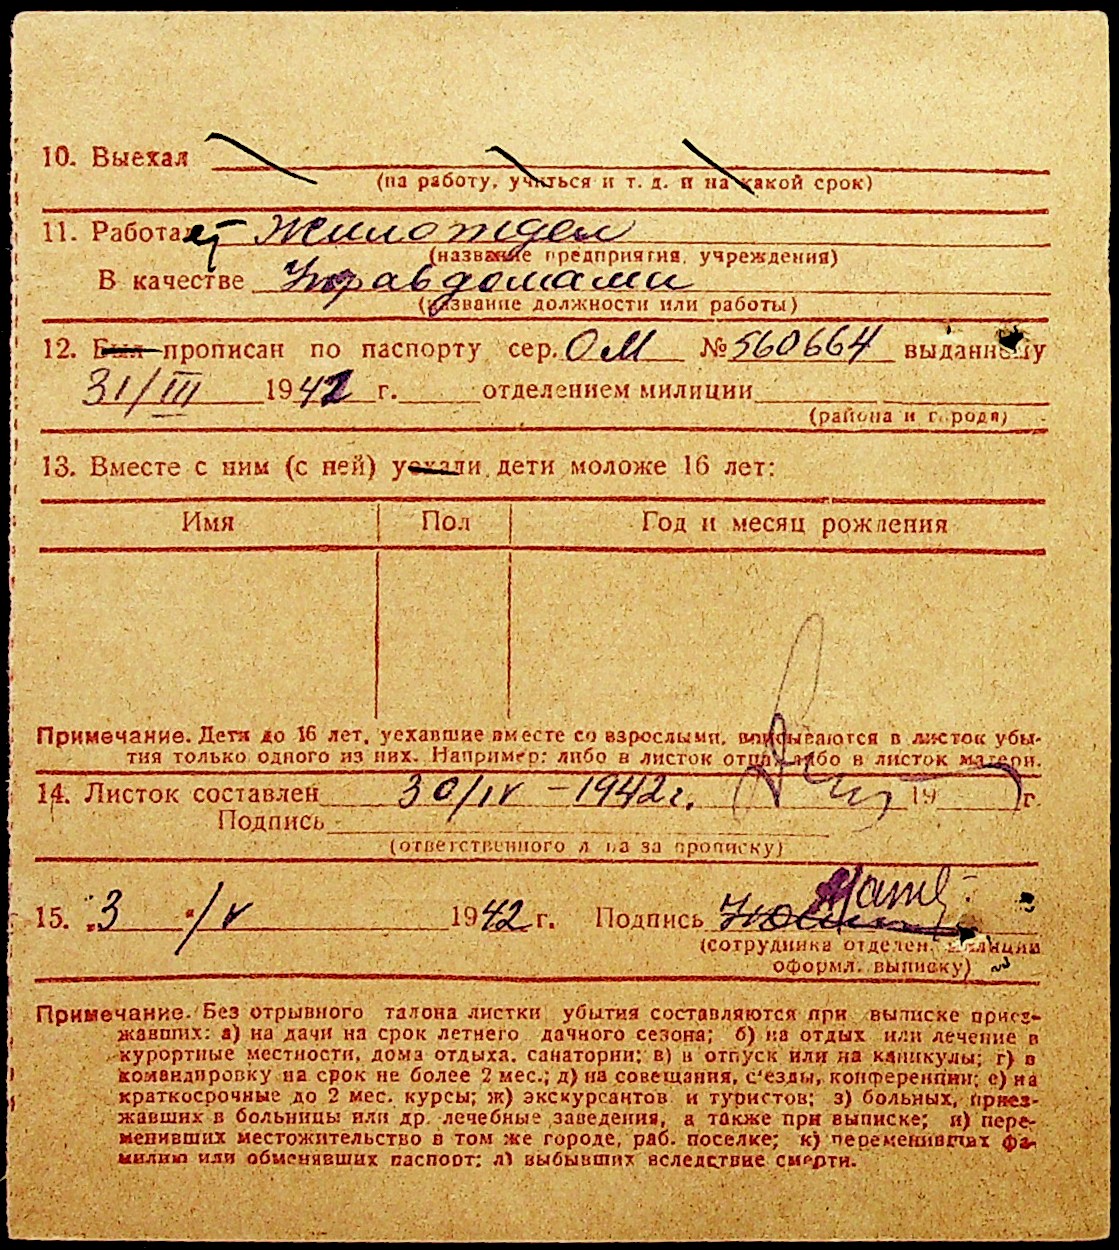 10. Выехал
(на работу, учиться и т. д. и на какой срок)
11. Работает Жилотдел
(название предприятия, учреждения)
В качестве Управдомами
(название должности или работы)
12. Был прописан по паспорту сер. ОМ № 560664 выданному
31/III 1942 г. отделением милиции
(района и города)
13. Вместе с ним (с ней) уехали дети моложе 16 лет:
Имя Пол Год и месяц рождения
Примечание. Дети до 16 лет, уехавшие вместе со взрослыми, вписываются в листок убы-
тия только одного из них. Например: либо в листок отца, либо в листок матери.
14. Листок составлен 30/IV - 1942 г. 19 г.
Подпись
(ответственного лица за прописку)
15. „3 “/V 1942 г. Подпись
(сотрудника отделен. милиции
оформл. выписку)
Примечание. Без отрывного талона листки убытия составляются при выписке приез-
жавших: а) на дачи на срок летнего дачного сезона; б) на отдых или лечение в
курортные местности, дома отдыха, санатории; в) в отпуск или на каникулы; г) в
командировку на срок не более 2 мес.; д) на совещания, с'езды, конференции; е) на
краткосрочные до 2 мес. курсы; ж) экскурсантов и туристов; з) больных, приез-
жавших в больницы или др. лечебные заведения, а также при выписке; и) пере-
менивших местожительство в том же городе, раб. поселке; к) переменивших фа-
милию или обменявших паспорт; л) выбывших вследствие смерти.